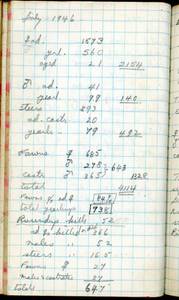 July 1946
♀ ad. 1573
yrl. 560
aged 21 2154
♂ ad. 41
yearl. 99 140
steers
ad. castr. 20
yearl. 79 492
Fawns ♀ 685
♂ 278 643
castr 365 1328
total 4114
Fawns % ad ♀ 84%
total yearlings 738
killed 52
ad ♀ killed 386
males 52
steers 165
Fawns ♀ 27
males & castrates
totals 647